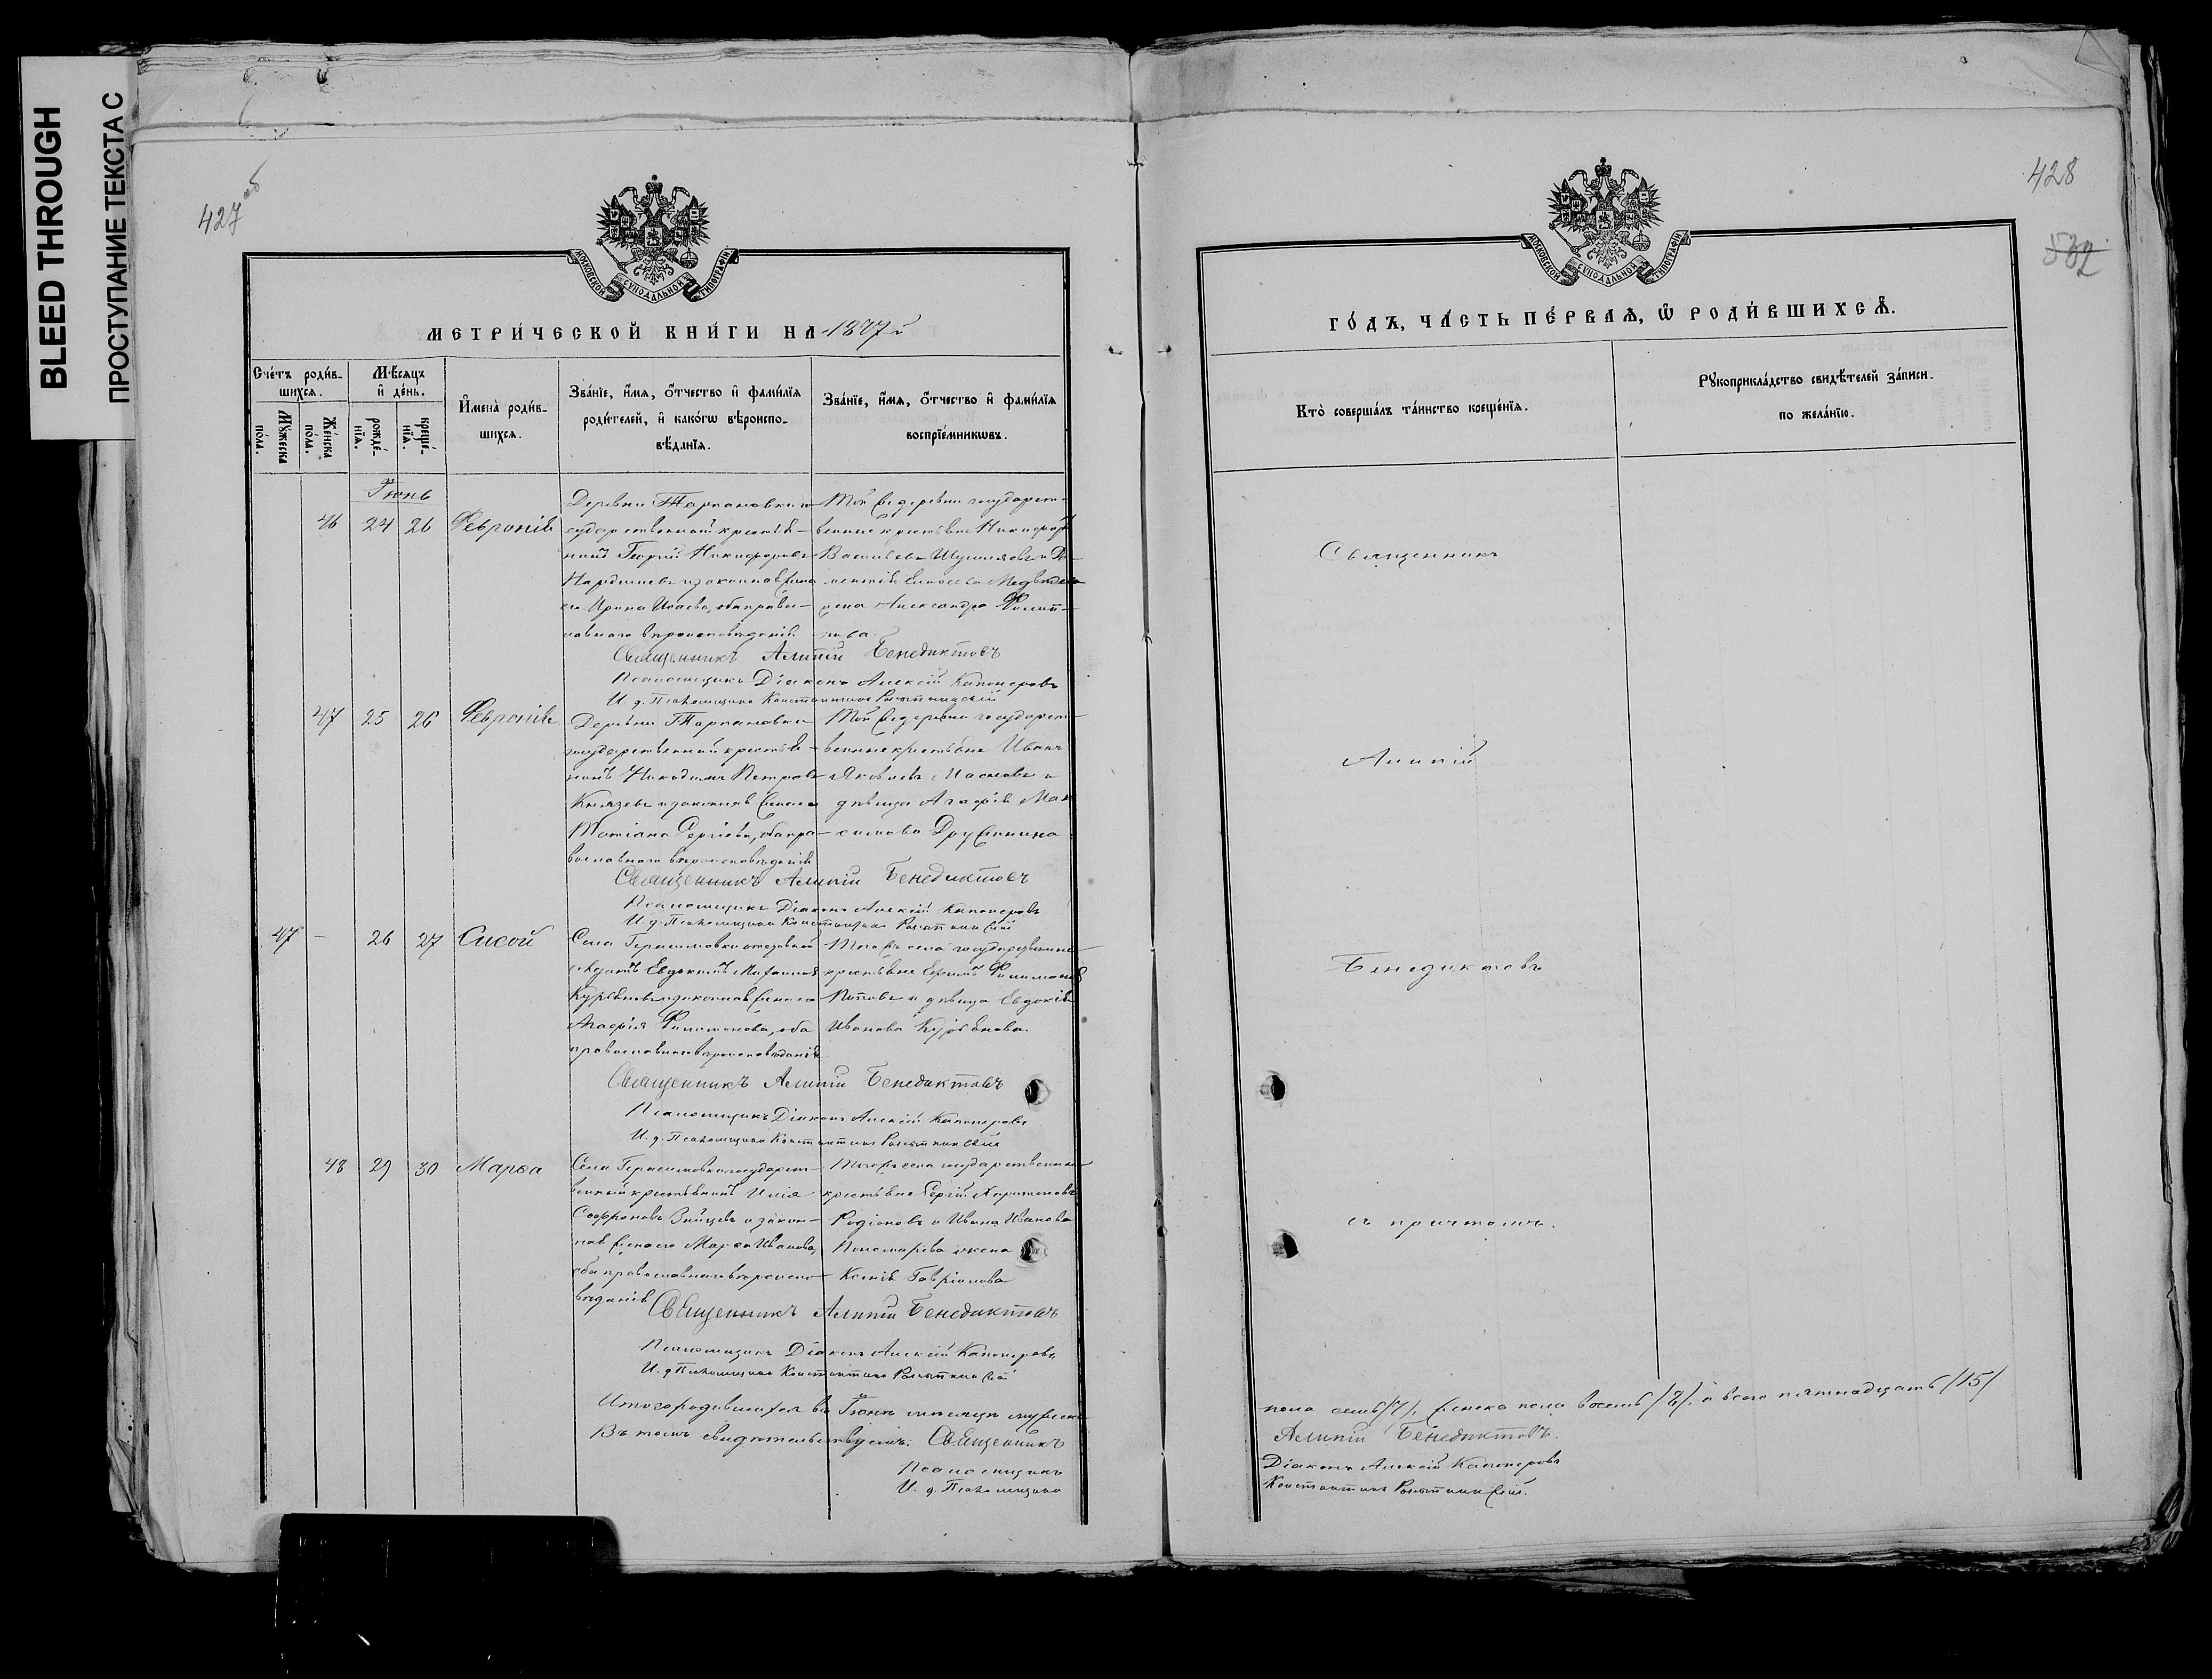 BLEED THROUGH
ПРОСТУПАНИЕ ТЕКСТА С
427 об
МОСКОВСКОЙ СУНОДАЛЬНОЙ ТИПОГРАФІИ
МЕТРИ́ЧЕСКОЙ КНИ́ГИ НА 1877 й
Сче́тъ роди́в-
шихсѧ.
Мꙋ́жеска
по́ла.
Же́нска
по́ла.
Мѣ́сѧцъ
и҆ де́нь.
рожде́-
нїѧ.
креще́-
нїѧ.
И҆мена̀ роди́в-
шихсѧ.
Зва́нїе, и҆́мѧ, ѻ҆́тчество и҆ фами́лїѧ
роди́телей, и҆ како́гѡ вѣроиспо-
вѣ́данїѧ.
Зва́нїе, и҆́мѧ, ѻ҆́тчество и҆ фами́лїѧ
воспрїе́мникѡвъ.
Іюнь
46 24 26 Февронія
Деревни Тарпановки го-
сударственный крестья-
нинъ Георгій Никифоровъ
и законная жена
его Ирина Исаева, оба право-
славнаго вѣроисповѣданія
Той же деревни государст-
венные крестьяне Никифоръ
Васильевъ
жена Александра Филип-
пова
Священникъ Алипій Бенедиктовъ
Псаломщикъ Діаконъ Алексій Капонеровъ
И. д. Псаломщика Константинъ
47 25 26 Февронія
Деревни Тарпановки
государственный крестья-
нинъ Никодимъ Петровъ
Князевъ и законная жена его
Татіана Сергіева, оба пра-
вославнаго вѣроисповѣданія
Той же деревни государст-
венные крестьяне Иванъ
Яковлевъ Масловъ и
дѣвица Агафія Мак-
симова Дружинина
Священникъ Алипій Бенедиктовъ
Псаломщикъ Діаконъ Алексій Капонеровъ
И. д. Псаломщика Константинъ
47 – 26 27 Сисой
Села Герасимовки отставной
солдатъ Евдокимъ Михаиловъ
Курьяновъ и законная жена его
Агафія Филимонова, оба
православнаго вѣроисповѣданія
Того жъ села государственные
крестьяне Ефимъ Филимоновъ
Поповъ и дѣвица Евдокія
Иванова Курьянова.
Священникъ Алипій Бенедиктовъ
Псаломщикъ Діаконъ Алексій Капонеровъ
И. д. Псаломщика Константинъ
48 29 30 Марѳа
Села Герасимовки государст-
венный крестьянинъ Илія
Софроновъ Зайцевъ и закон-
ная жена его Марѳа Иванова,
оба православнаго вѣроиспо-
вѣданія
Того жъ села государственные
крестьяне Сергій Харитоновъ
Родіоновъ и Ивана Иванова
Пономарева жена
Ксенія Гавріилова
Священникъ Алипій Бенедиктовъ
Псаломщикъ Діаконъ Алексій Капонеровъ
И. д. Псаломщика Константинъ
Итого родившихся въ Іюнѣ мѣсяцѣ мужеска
Въ томъ свидѣтельствуемъ: Священникъ
Псаломщикъ
И. д. Псаломщика
428
532
МОСКОВСКОЙ СУНОДАЛЬНОЙ ТИПОГРАФІИ
ГО́ДЪ, ЧА́СТЬ ПЕ́РВАѦ, Ѡ҆ РОДИ́ВШИХСѦ.
Кто̀ соверша́лъ та́инство креще́нїѧ.
Рꙋкоприкла́дство свидѣ́телей за́писи.
по жела́нїю.
Священникъ
Алипій
Бенедиктовъ
съ причтомъ.
пола семь /7/, женска пола восемь /8/, а всего пятнадцать /15/
Алипій Бенедиктовъ.
Діаконъ Алексій Капонеровъ
Константинъ